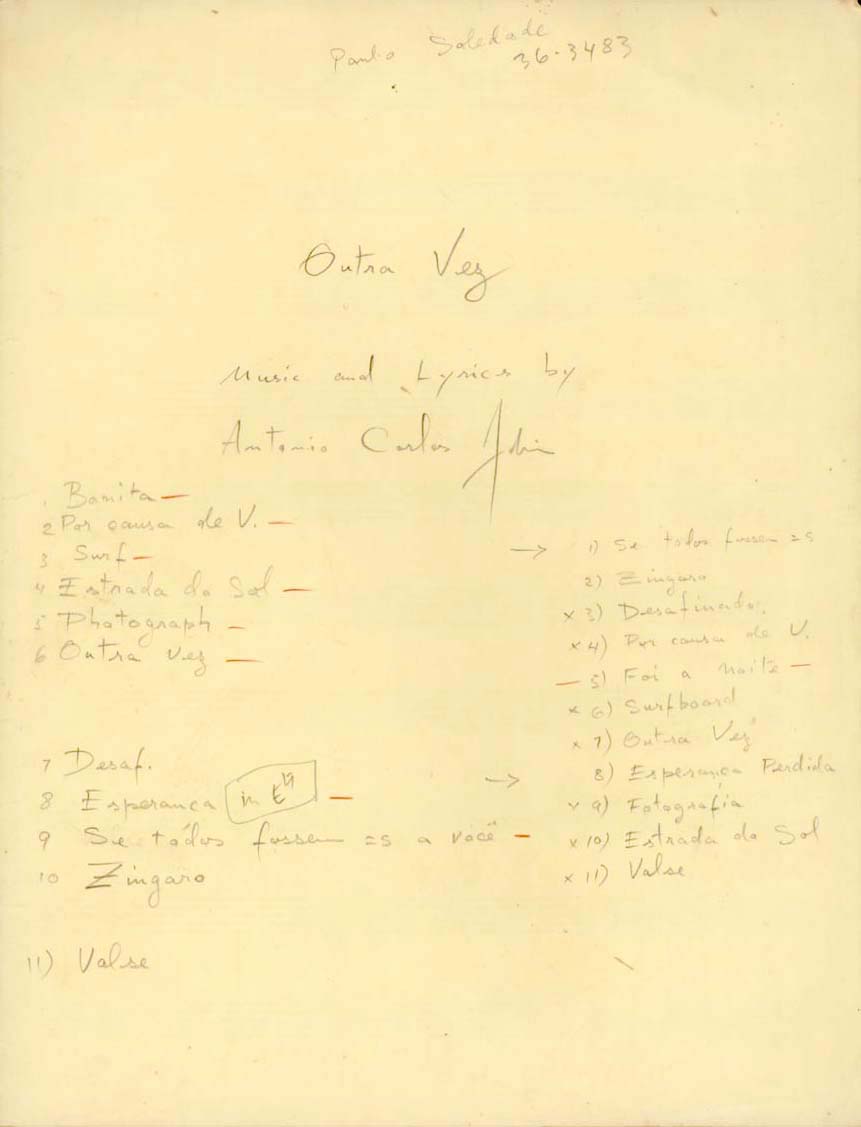 Paulo Soledade
36-3483
Outra Vez
Music and Lyrics by
Antonio Carlos Jobim
1 Bonita —
2 Por causa de V. —
3 Surf —
4 Estrada do Sol —
5 Photograph —
6 Outra Vez —
7 Desaf.
8 Esperança in E♮ —
9 Se todos fossem =s a você —
10 Zingaro
11) Valse
→ 1) Se todos fossem =s
2) Zingaro
x 3) Desafinado.
x 4) Por causa de V.
— 5) Foi a Noite —
x 6) Surfboard
x 7) Outra Vez
→ 8) Esperança Perdida
x 9) Fotografia
x 10) Estrada do Sol
x 11) Valse